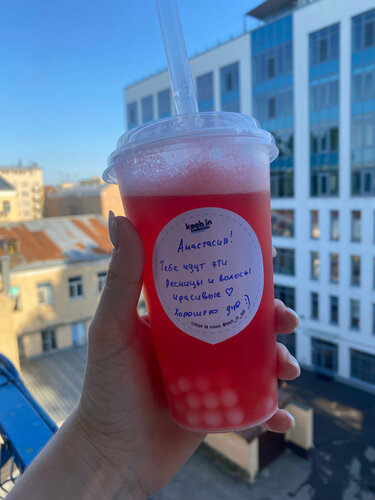 kach.in
Анастасия!
Тебе идут эти
ресницы и волосы
красивые ♡
Хорошего дня :)
следи за нами: